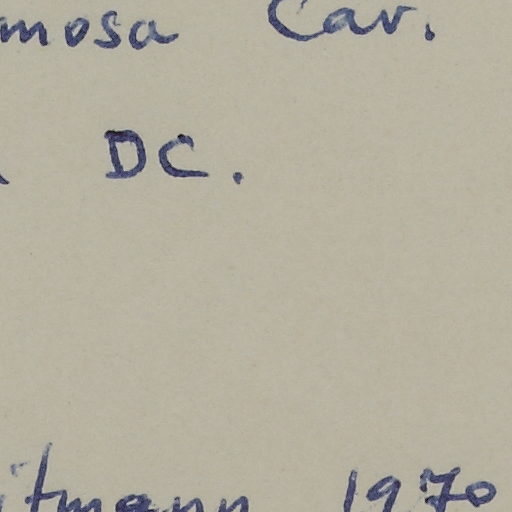 mosa Cav.
DC.
itmann 1970